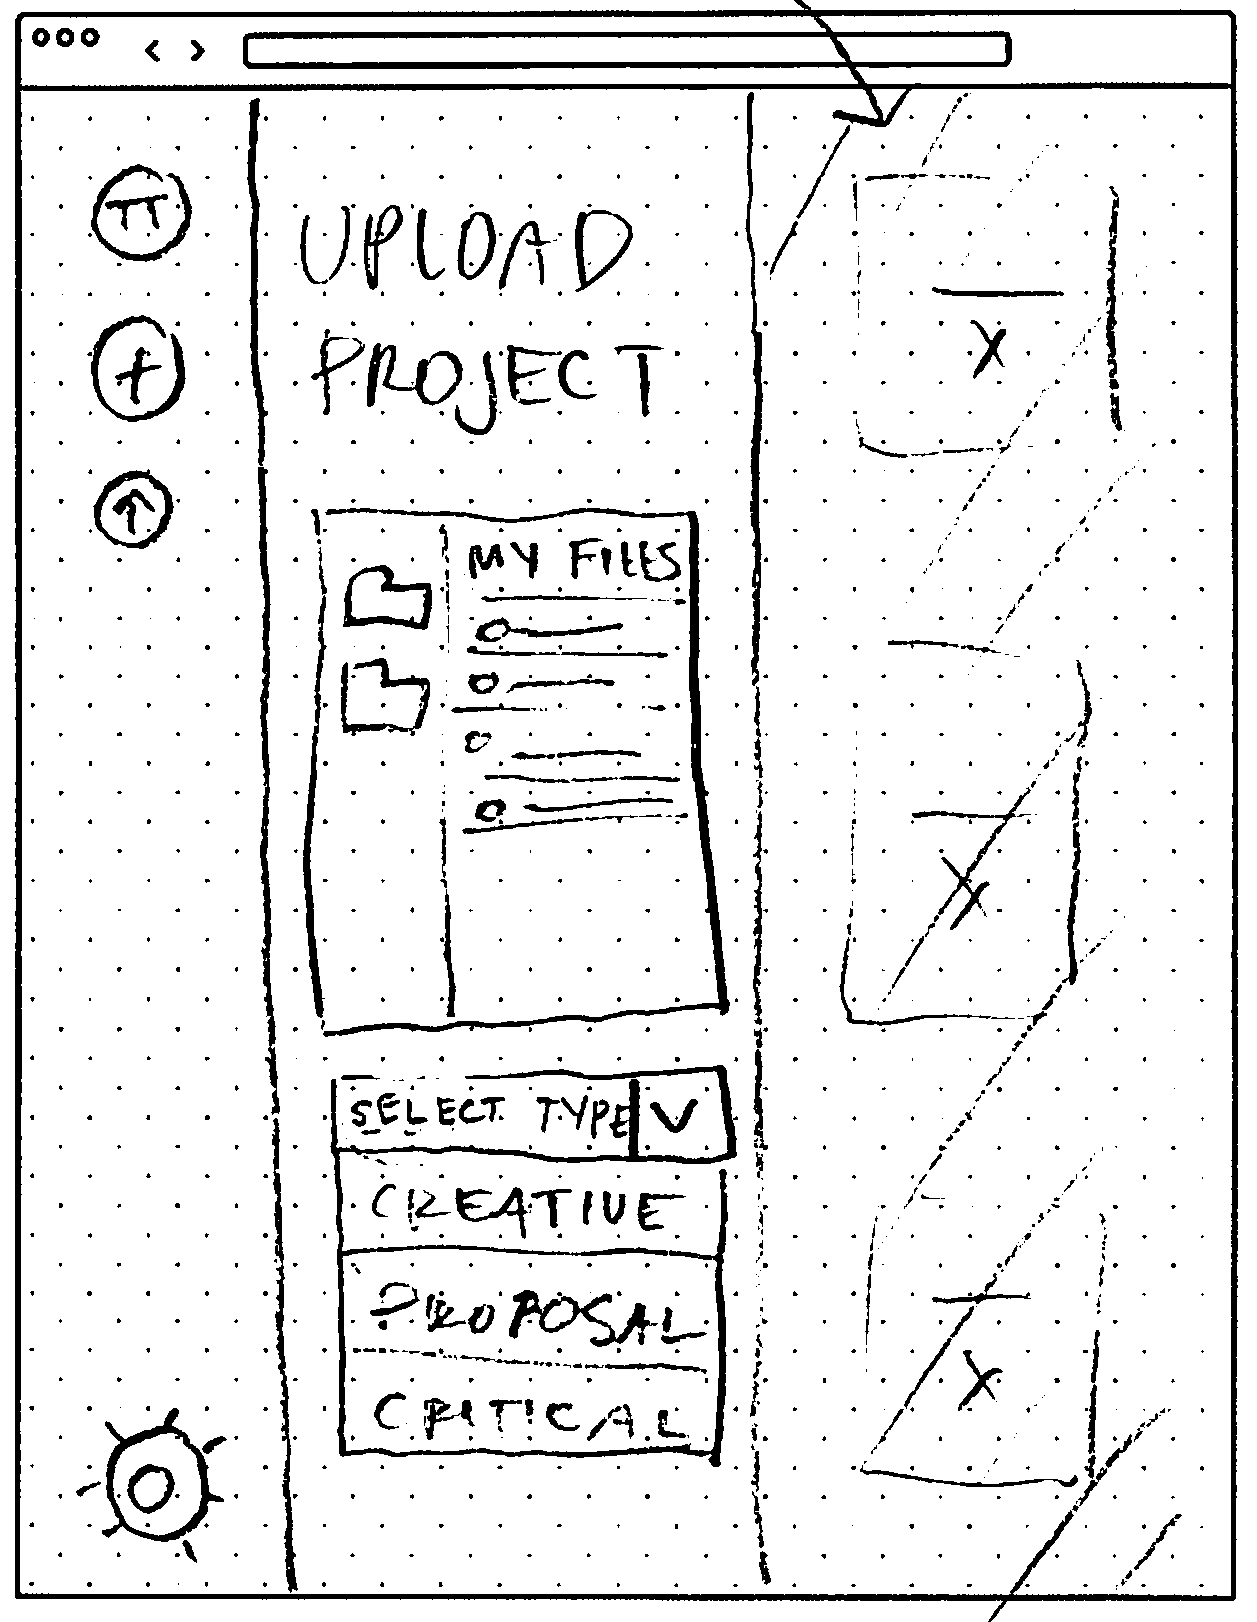 TT
+
UPLOAD
PROJECT
MY FILES
SELECT TYPE
CREATIVE
PROPOSAL
CRITICAL
X
X
X